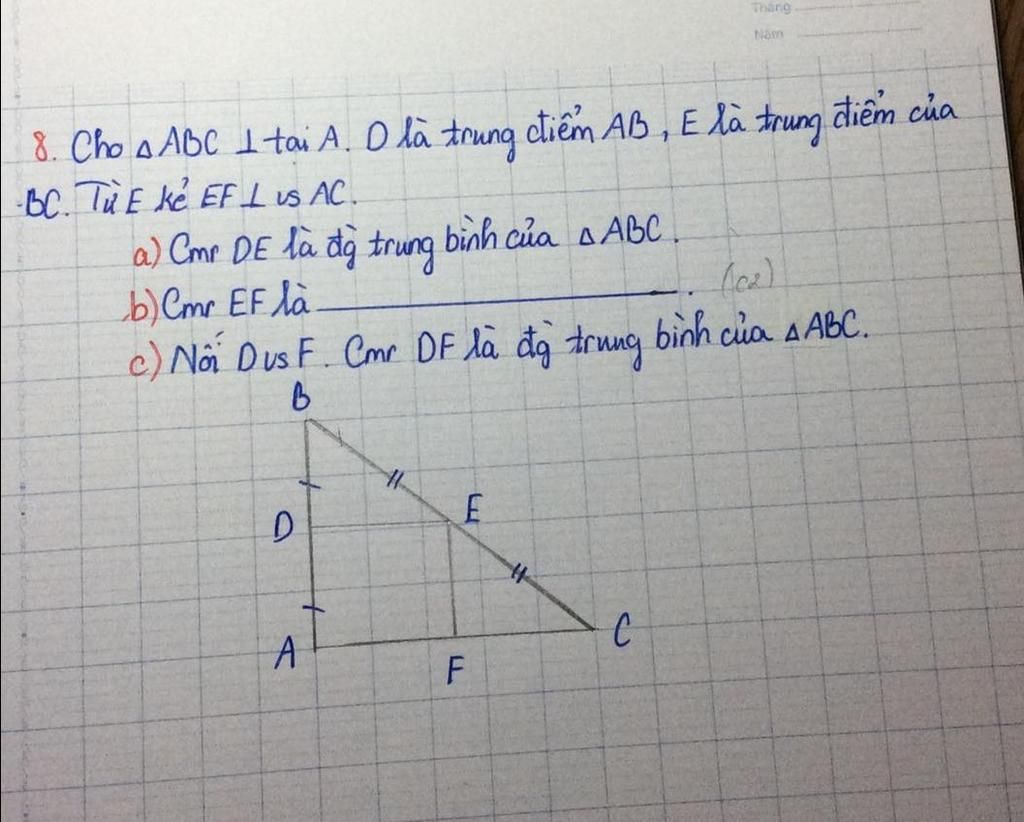 Tháng
Năm
8. Cho △ABC ⊥ tại A. D là trung điểm AB, E là trung điểm của
BC. Từ E kẻ EF ⊥ vs AC.
a) Cmr DE là đg̀ trung bình của △ABC.
b) Cmr EF là ________. (c2)
c) Nối D vs F. Cmr DF là đg̀ trung bình của △ABC.
B
D
E
A
F
C